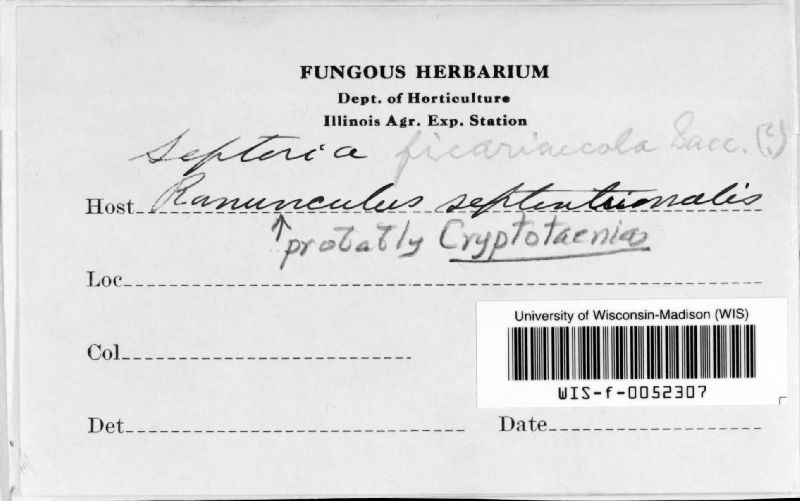 FUNGOUS HERBARIUM
Dept. of Horticulture
Illinois Agr. Exp. Station
Septoria ficariaecola Sacc. (?)
Host Ranunculus septentrionalis
↑ probably Cryptotaenia
Loc
Col
University of Wisconsin-Madison (WIS)
WIS-f-0052307
Det
Date